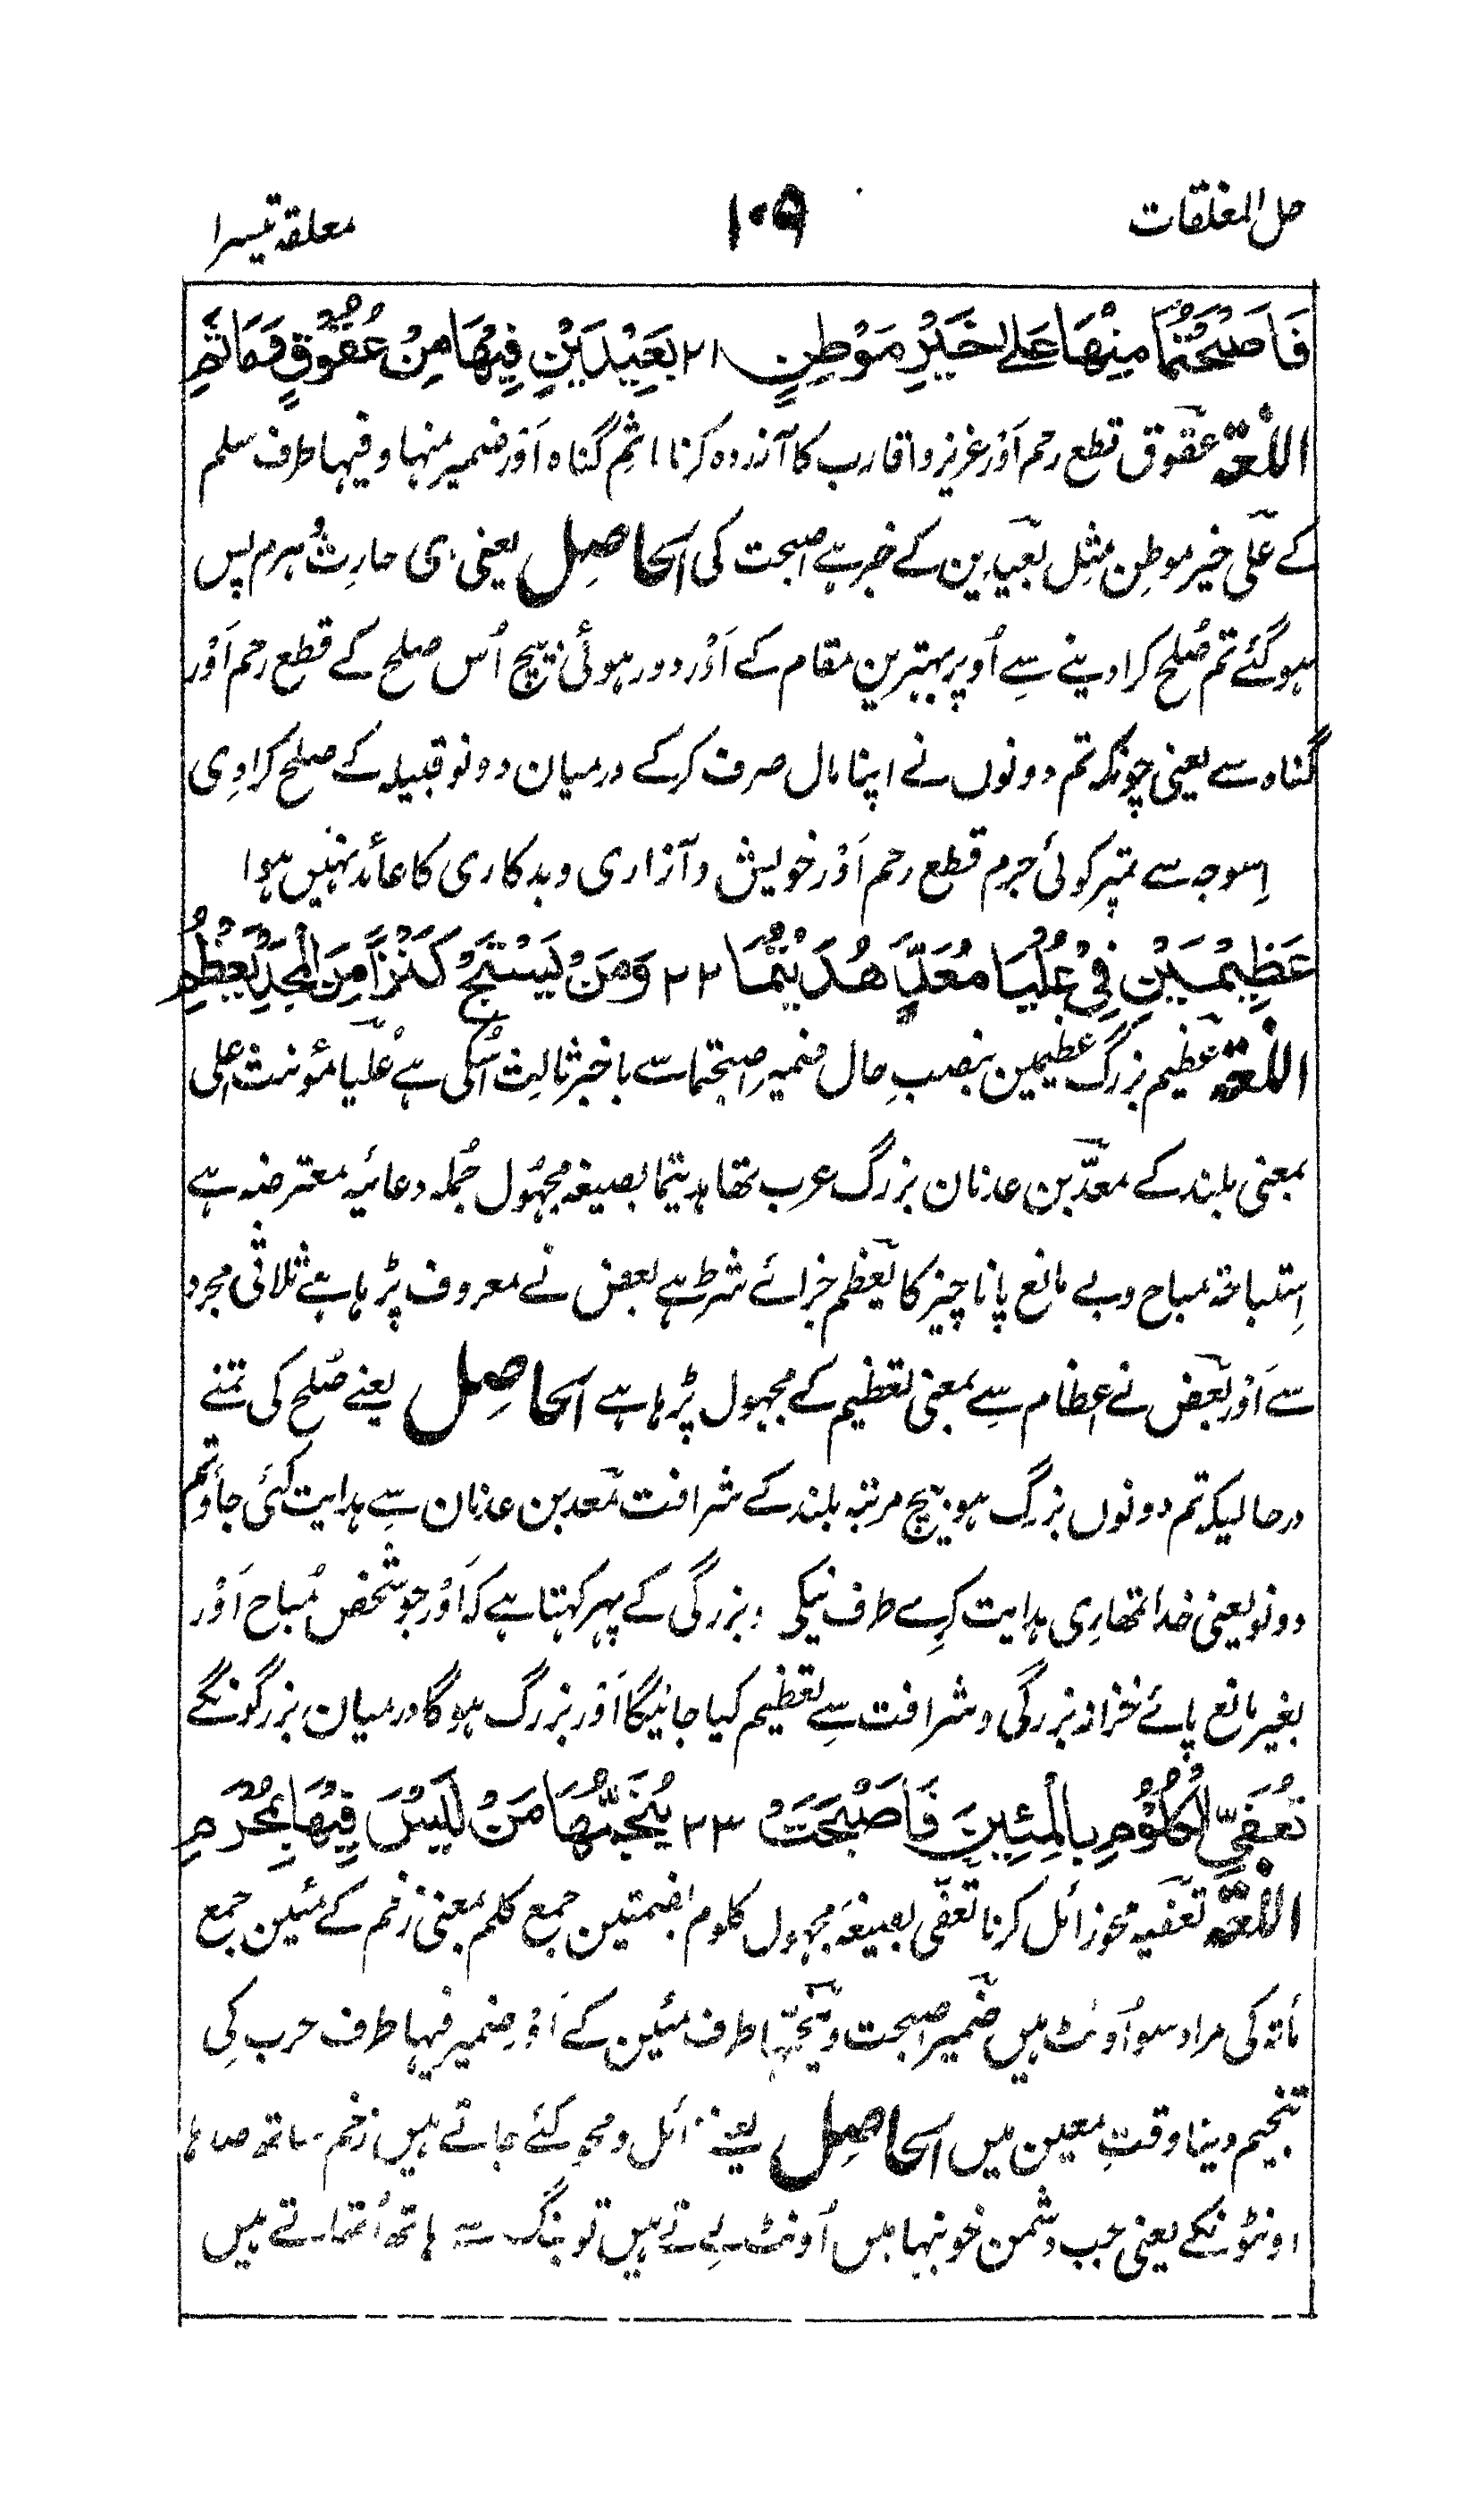 حل المغلقات ۱۰۹ معلقہ تیسرا
فَاَصْبَحْتُمَا مِنْهَا عَلٰى خَيْرِ مَوْطِنٍ ۲۱ بَعِيْدَيْنِ فِيْهَا مِنْ عُقُوْقٍ وَمَاْثَمِ
اللغۃ عقوق قطع رحم اَوْر عزیز و اقارب کا آزردہ کرنا اثم گناہ اَوْر ضمیر منہا و فیہا طرف سلم
کے علٰی خیر موطن مثل بعیدین کے خبر ہے اصبحت کی الحاصِل یعنی ای حارث ہرم پس
ہو گئے تم صُلح کرا دینے سے اُوپر بہترین مقام کے اَوْر دور ہوئی بیچ اُس صلح کے قطع رحم اَوْر
گناہ سے یعنی چونکہ تم دونوں نے اپنا مال صرف کر کے درمیان دونو قبیلہ کے صلح کرادِی
اِسوجہ سے تمپر کوئی جرم قطع رحم اَوْر خویش و آزاری و بدکاری کا عائد نہیں ہوا
عَظِيْمَيْنِ فِيْ عُلْيَا مُعَدٍّ هُدِيْتُمَا ۲۲ وَمَنْ يَسْتَبِحْ كَنْزًا مِنَ الْمَجْدِ يَعْظُمِ
اللغۃ عظیم بزرگ عظیمین بنصب حال ضمیر اصبحتما سے یا خبر ثالث اُسکی ہے عُلیا مؤنث اعلی
بمعنی بلند کے معدّ بن عدنان بزرگ عرب تھا ہدیتما بصیغہ مجہُول جُملہ دعائیہ معترضہ ہے
اِستباحۃ مباح و بے مانع پانا چیز کا یعظم جزائے شرط ہے بعض نے معروف پڑہا ہے ثلاثی مجرد
سے اَوْر بعض نے اعظام سے بمعنی تعظیم کے مجہول پڑہا ہے الحاصِل یعنے صُلح کی تمنے
درحالیکہ تم دونوں بزرگ ہو بیچ مرتبہ بلند کے شرافت معد بن عدنان سے ہدایت کئی جاؤ تم
دونو یعنی خدا تمہارِی ہدایت کرے طرف نیکی و بزرگی کے پہر کہتا ہے کہ اَوْر جو شخص مُباح اَوْر
بغیر مانع پائے خزانہ بزرگی و شرافت سے تعظیم کیا جائیگا اَوْر بزرگ ہوگا درمیان بزرگونکے
تُعَفَّى الْكُلُوْمُ بِالْمِئِيْنَ فَاَصْبَحَتْ ۲۳ يُنَجِّمُهَا مَنْ لَيْسَ فِيْهَا بِمُجْرِمِ
اللغۃ تعفیہ محو زائل کرنا تعفّی بصیغۂ مجہول کلوم بضمتین جمع کلم بمعنی زخم کے مئین جمع
مأتہ کی مراد سو اُونٹ ہیں ضمیر اصبحت و ینجّمہا طرف مئین کے اَوْر ضمیر فیہا طرف حرب کِی
تنجیم دینا وقتِ معین میں الحاصِل یعنے زائل و محو کئے جاتے ہیں زخم ساتھ صدہا
اونٹونکے یعنی جب دشمن خونبہا میں اُونٹ لے لیتے ہیں تو جنگ سے ہاتھ اُٹھاتے ہیں